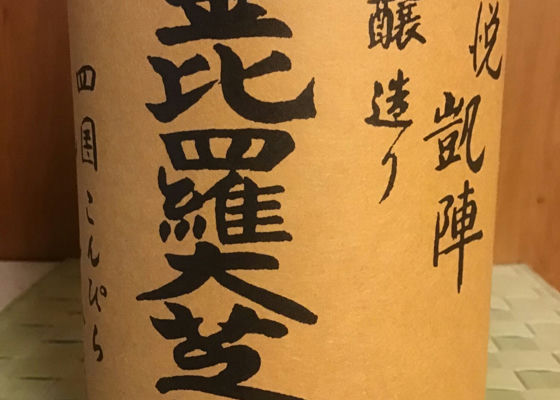 悦凱陣
醸造り
金比羅大芝
四国こんぴら